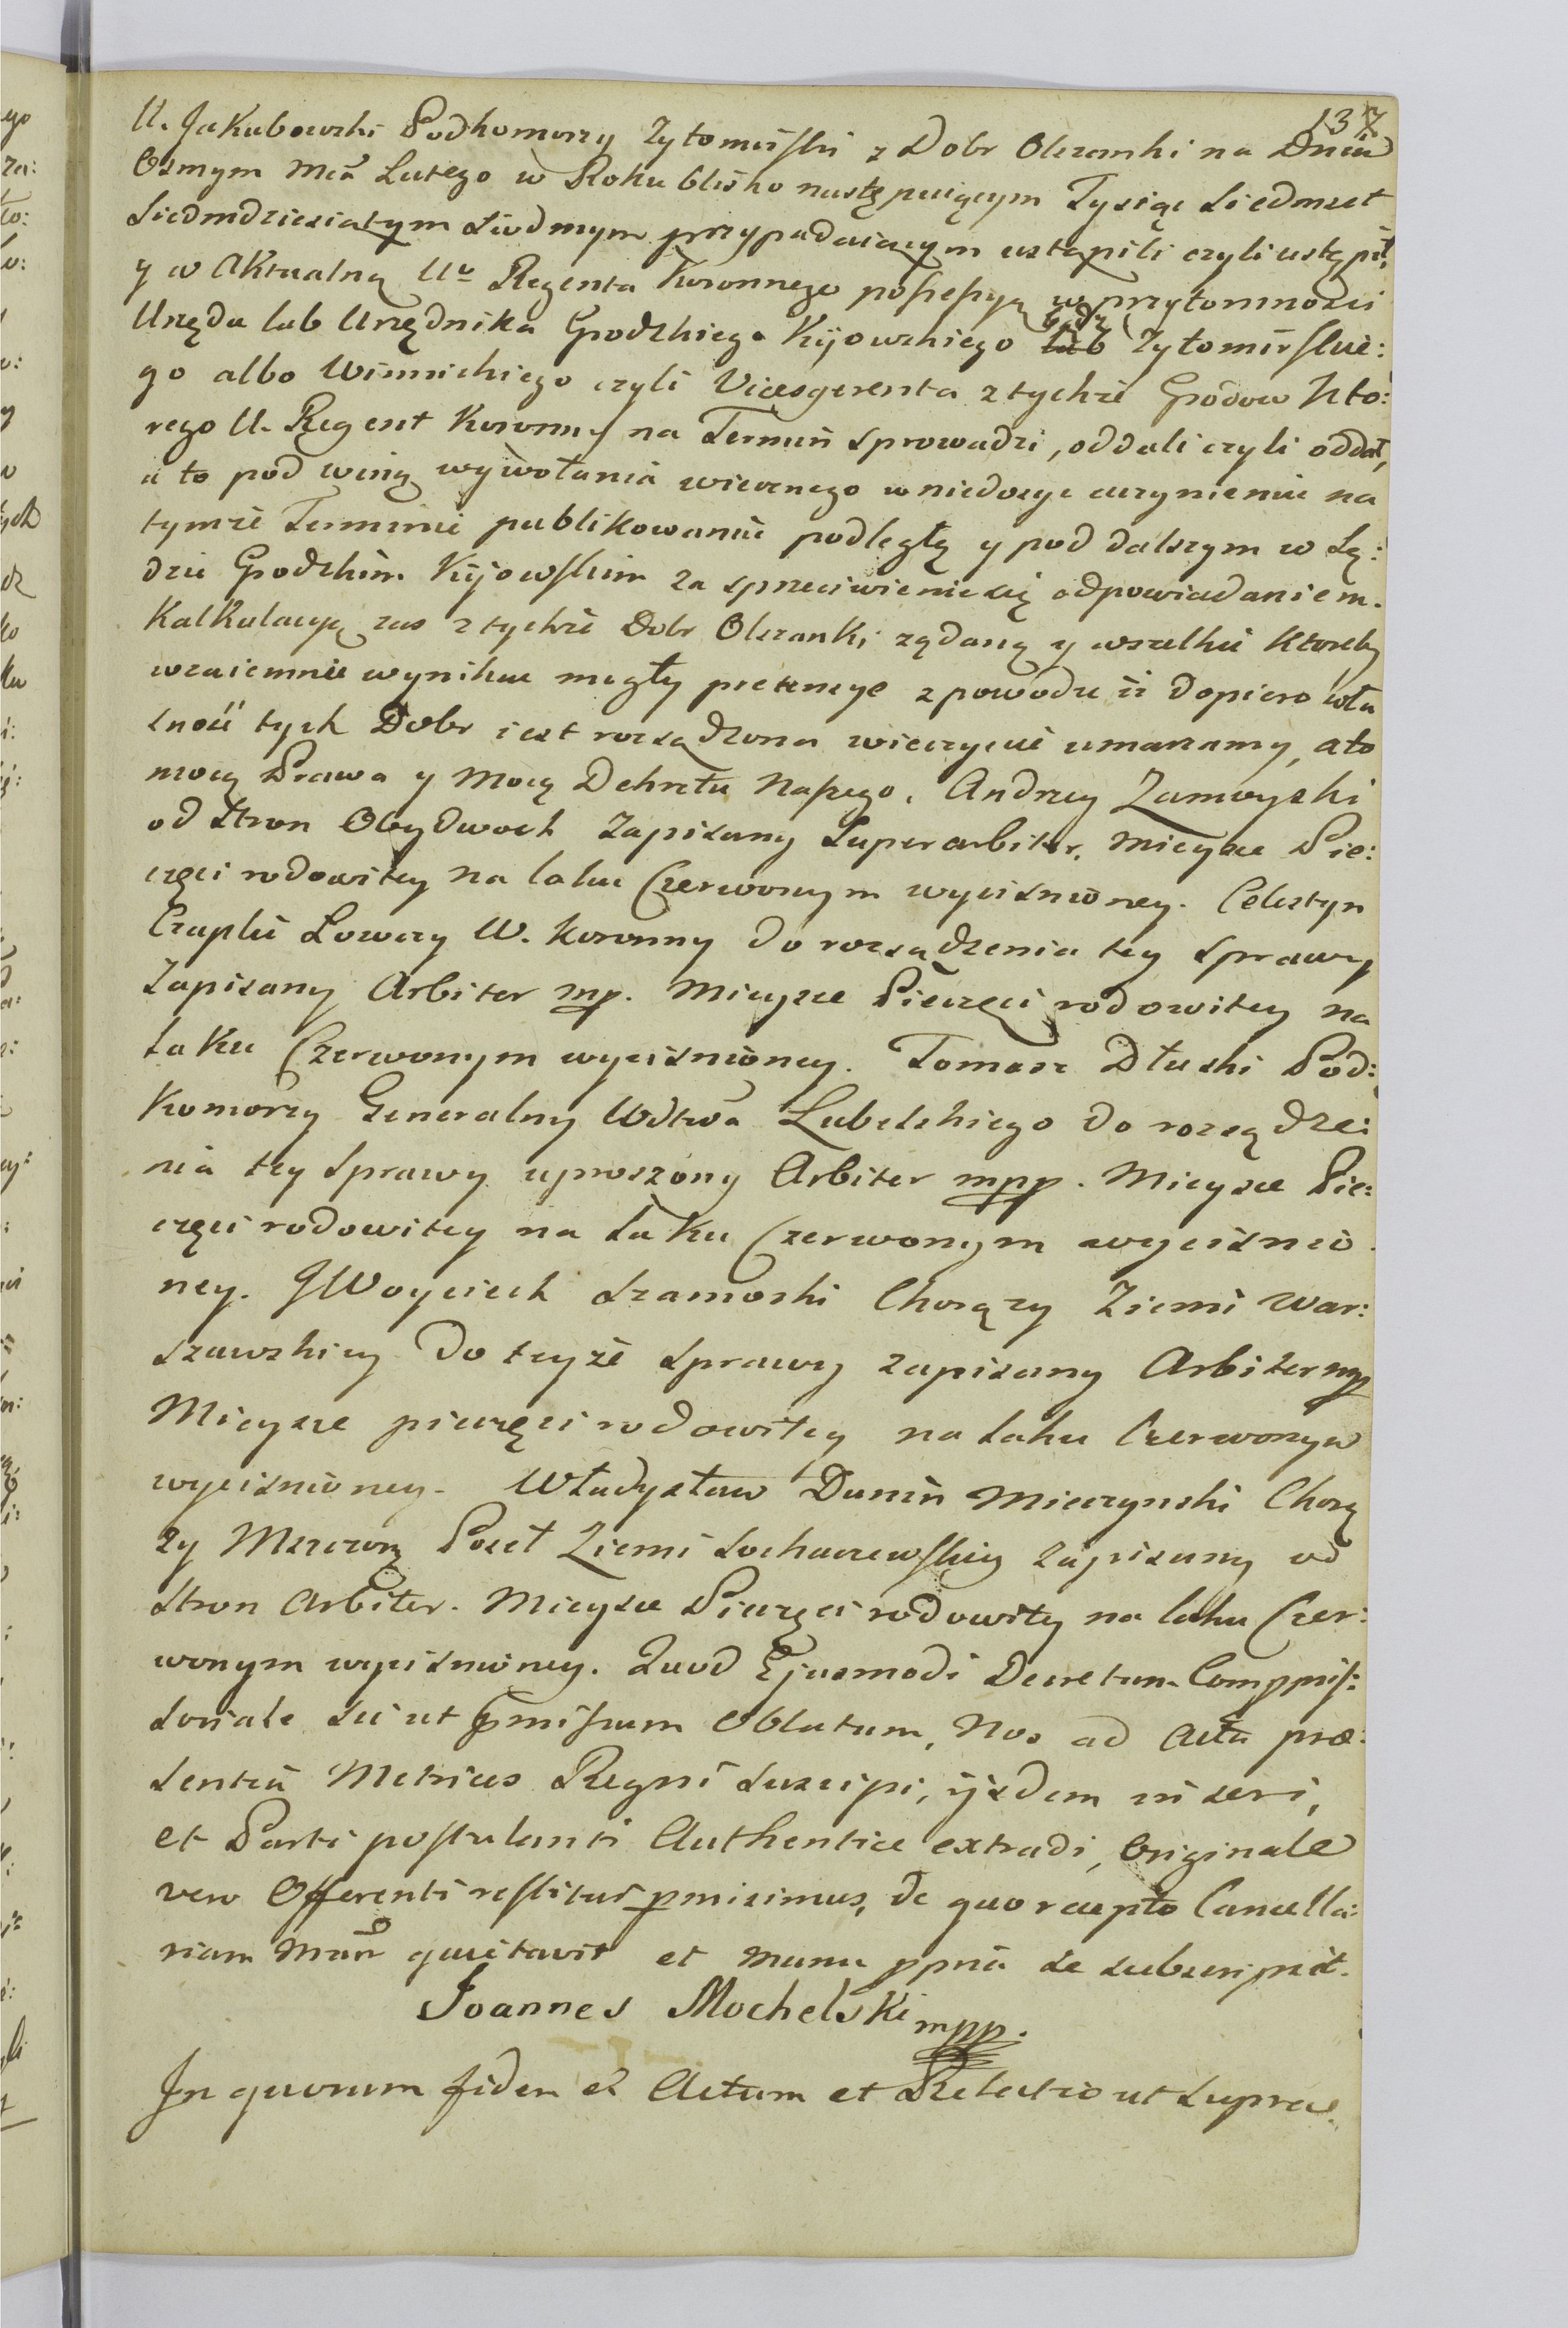 137
U. Jakubowski Podkomorzy Zytomirski z Dobr Olszanki na Dniu
Osmym Mca Lutego w Roku blisko następuiącym Tysiąc Siedmset
Siedmdziesiątym Siodmym przypadaiącym ustąpili czyli ustąpił,
y w Aktualną Uo Regenta Koronnego possessyą w przytomnosci
Urzędu lub Urzędnika Grodzkiego Kijowskiego bądz Zytomirskie:
go albo Winnickiego czyli Vicesgerenta z tychże Grodow Kto:
rego U. Regent Koronny na Termin sprowadzi, oddali czyli oddał,
a to pod winą wywołania wiecznego w niedosyc uczynieniu na
tymże Terminie publikowaniu podległą y pod dalszym w Są:
dzie Grodzkim Kijowskim za sprzeciwienie się odpowiadaniem.
Kalkulacyą zas z tychże Dobr Olszanki ządaną y wszelkie ktoreby
wzaiemnie wyniknąc mogły pretensye z powodu iż dopiero wła
snosc tych Dobr iest rozsądzona wieczyscie umarzamy, a to
mocą Prawa y Mocą Dekretu Naszego. Andrzey Zamoyski
od Stron Obydwoch Zapisany Superarbiter. Mieysce Pie:
częci rodowitey na laku Czerwonym wycisnioney. Celestyn
Czaplic Łowczy W. Koronny do rozsądzenia tey sprawy
Zapisany Arbiter mp. Mieysce Pieczęci rodowitey na
Laku Czerwonym wycisnioney. Tomasz Dłuski Pod:
Komorzy Generalny Wdztwa Lubelskiego do rozsądze:
nia tey Sprawy uproszony Arbiter mpp. Mieysce Pie:
częci rodowitey na Laku Czerwonym wycisnio
ney. J Woyciech Szamoski Chorązy Ziemi War:
szawskiey do teyże Sprawy zapisany Arbiter mp
Mieysce pieczęci rodowitey na Laku Czerwonym
wycisnioney. Władysław Dunin Mieczynski Chorą
zy Mszczon Poseł Ziemi Sochaczewskiey zapisany od
Stron Arbiter. Mieysce Pieczęci rodowitey na laku Czer:
wonym wycisnioney. Quod Ejusmodi Decretum Comppmis:
soriale sic ut pmissum Oblatum, Nos ad Acta præ:
sentia Metrices Regni suscipi, ijsdem inseri,
et Parti postulanti Authentice extradi, Originale
vero Offerenti restitui pmisimus, de quo recepto Cancella:
riam Mrem quietavit et manu ppria se subscripsit.
Joannes Mochelski mpp.
In quorum fidem etc Actum et Relatio ut supra.